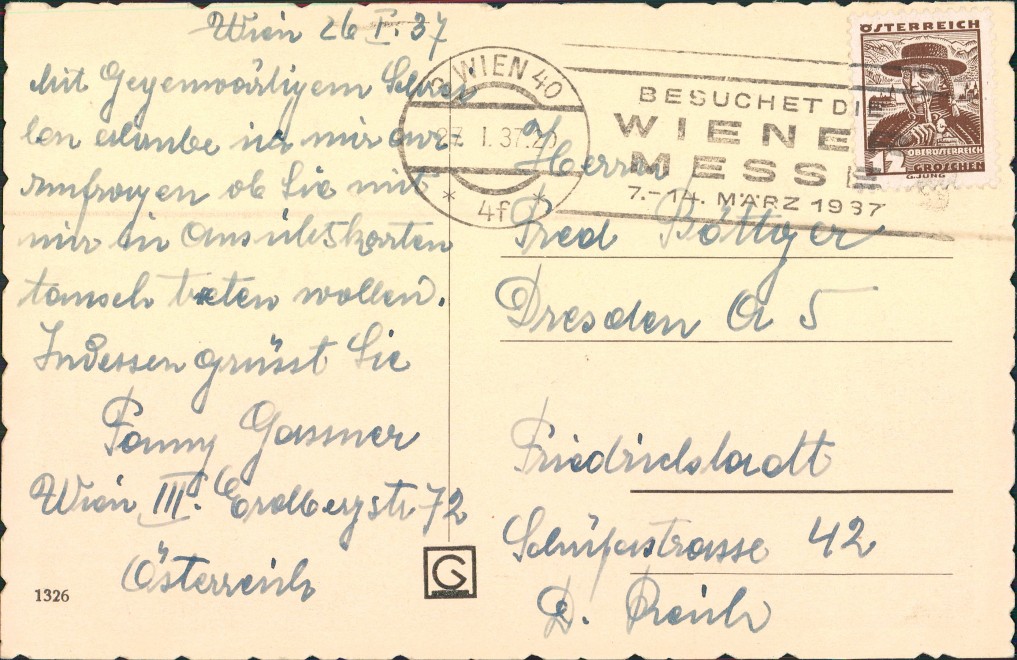 Wien 26 I. 37
Mit Gegenwärtigem Schrei
ben erlaube ich mir an
anfragen ob Sie mit
mir in Ansichtskarten
tausch treten wollen.
Indessen grüsst Sie
Fanny Gassner
Wien III. Erdbergstr 72
Österreich
1326
G
WIEN 40
27. I. 37.20
* 4f *
BESUCHET DIE
WIENE
MESSE
7.-14. MÄRZ 1937
ÖSTERREICH
OBERÖSTERREICH
12 GROSCHEN
G.JUNG
Herrn
Fred Böttger
Dresden A 5
Friedrichstadt
Schäferstrasse 42
D. Reich